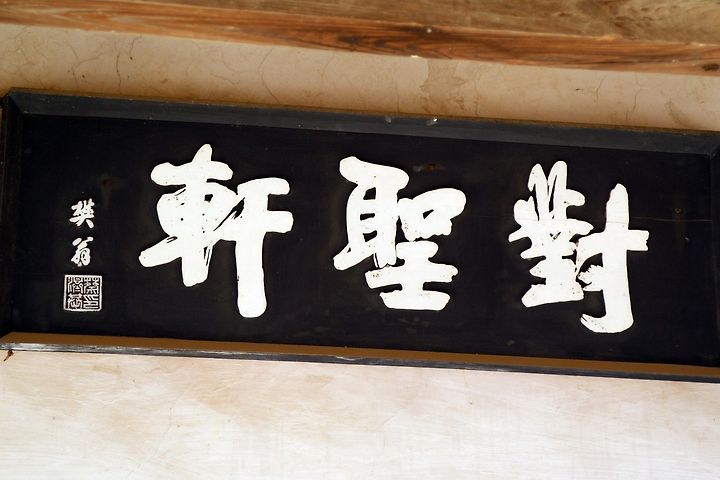 對聖軒
樊翁